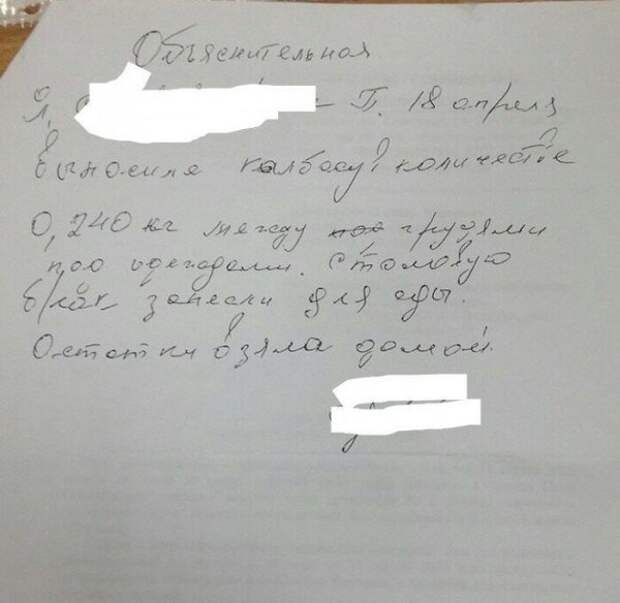 Объяснительная
Я, П. 18 апреля
выносила колбасу, количестве
0,240 кг между грудями
под одеждами. Столовую
б/як занесли для еды.
Остатки взяла домой.